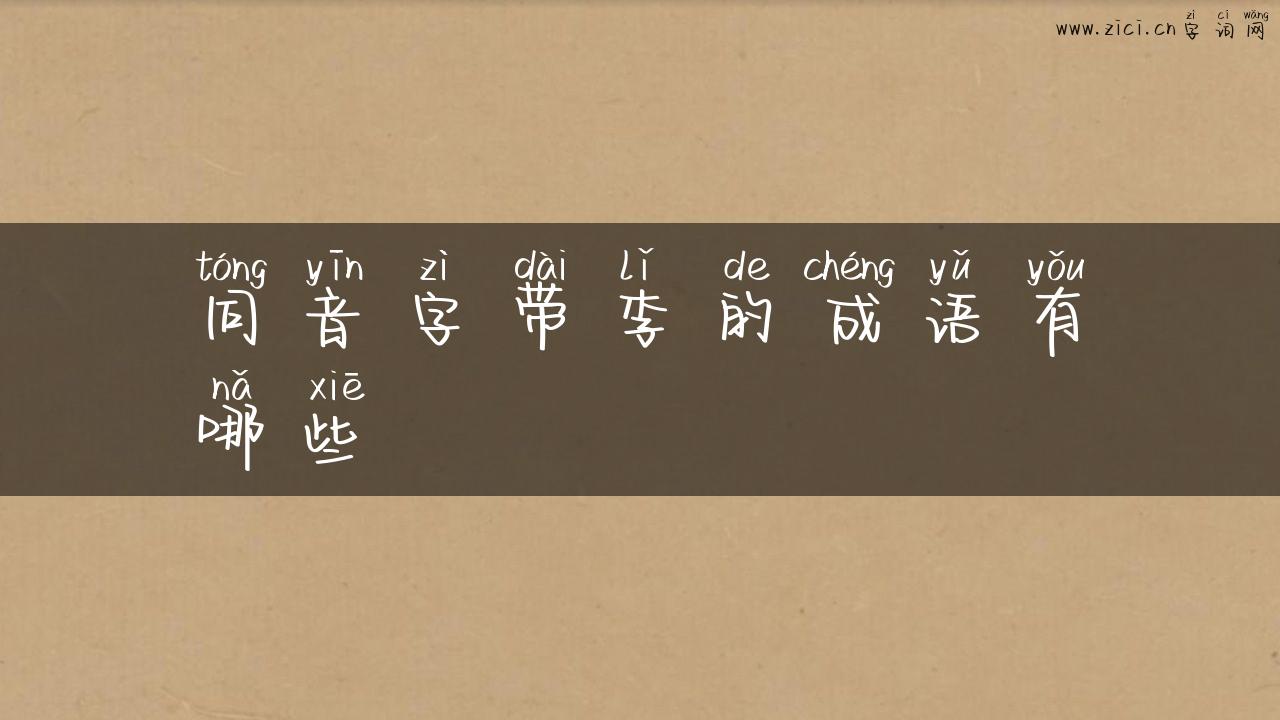 zì cí wǎng
www.zici.cn 字 词 网
tóng yīn zì dài lǐ de chéng yǔ yǒu
同 音 字 带 李 的 成 语 有
nǎ xiē
哪 些